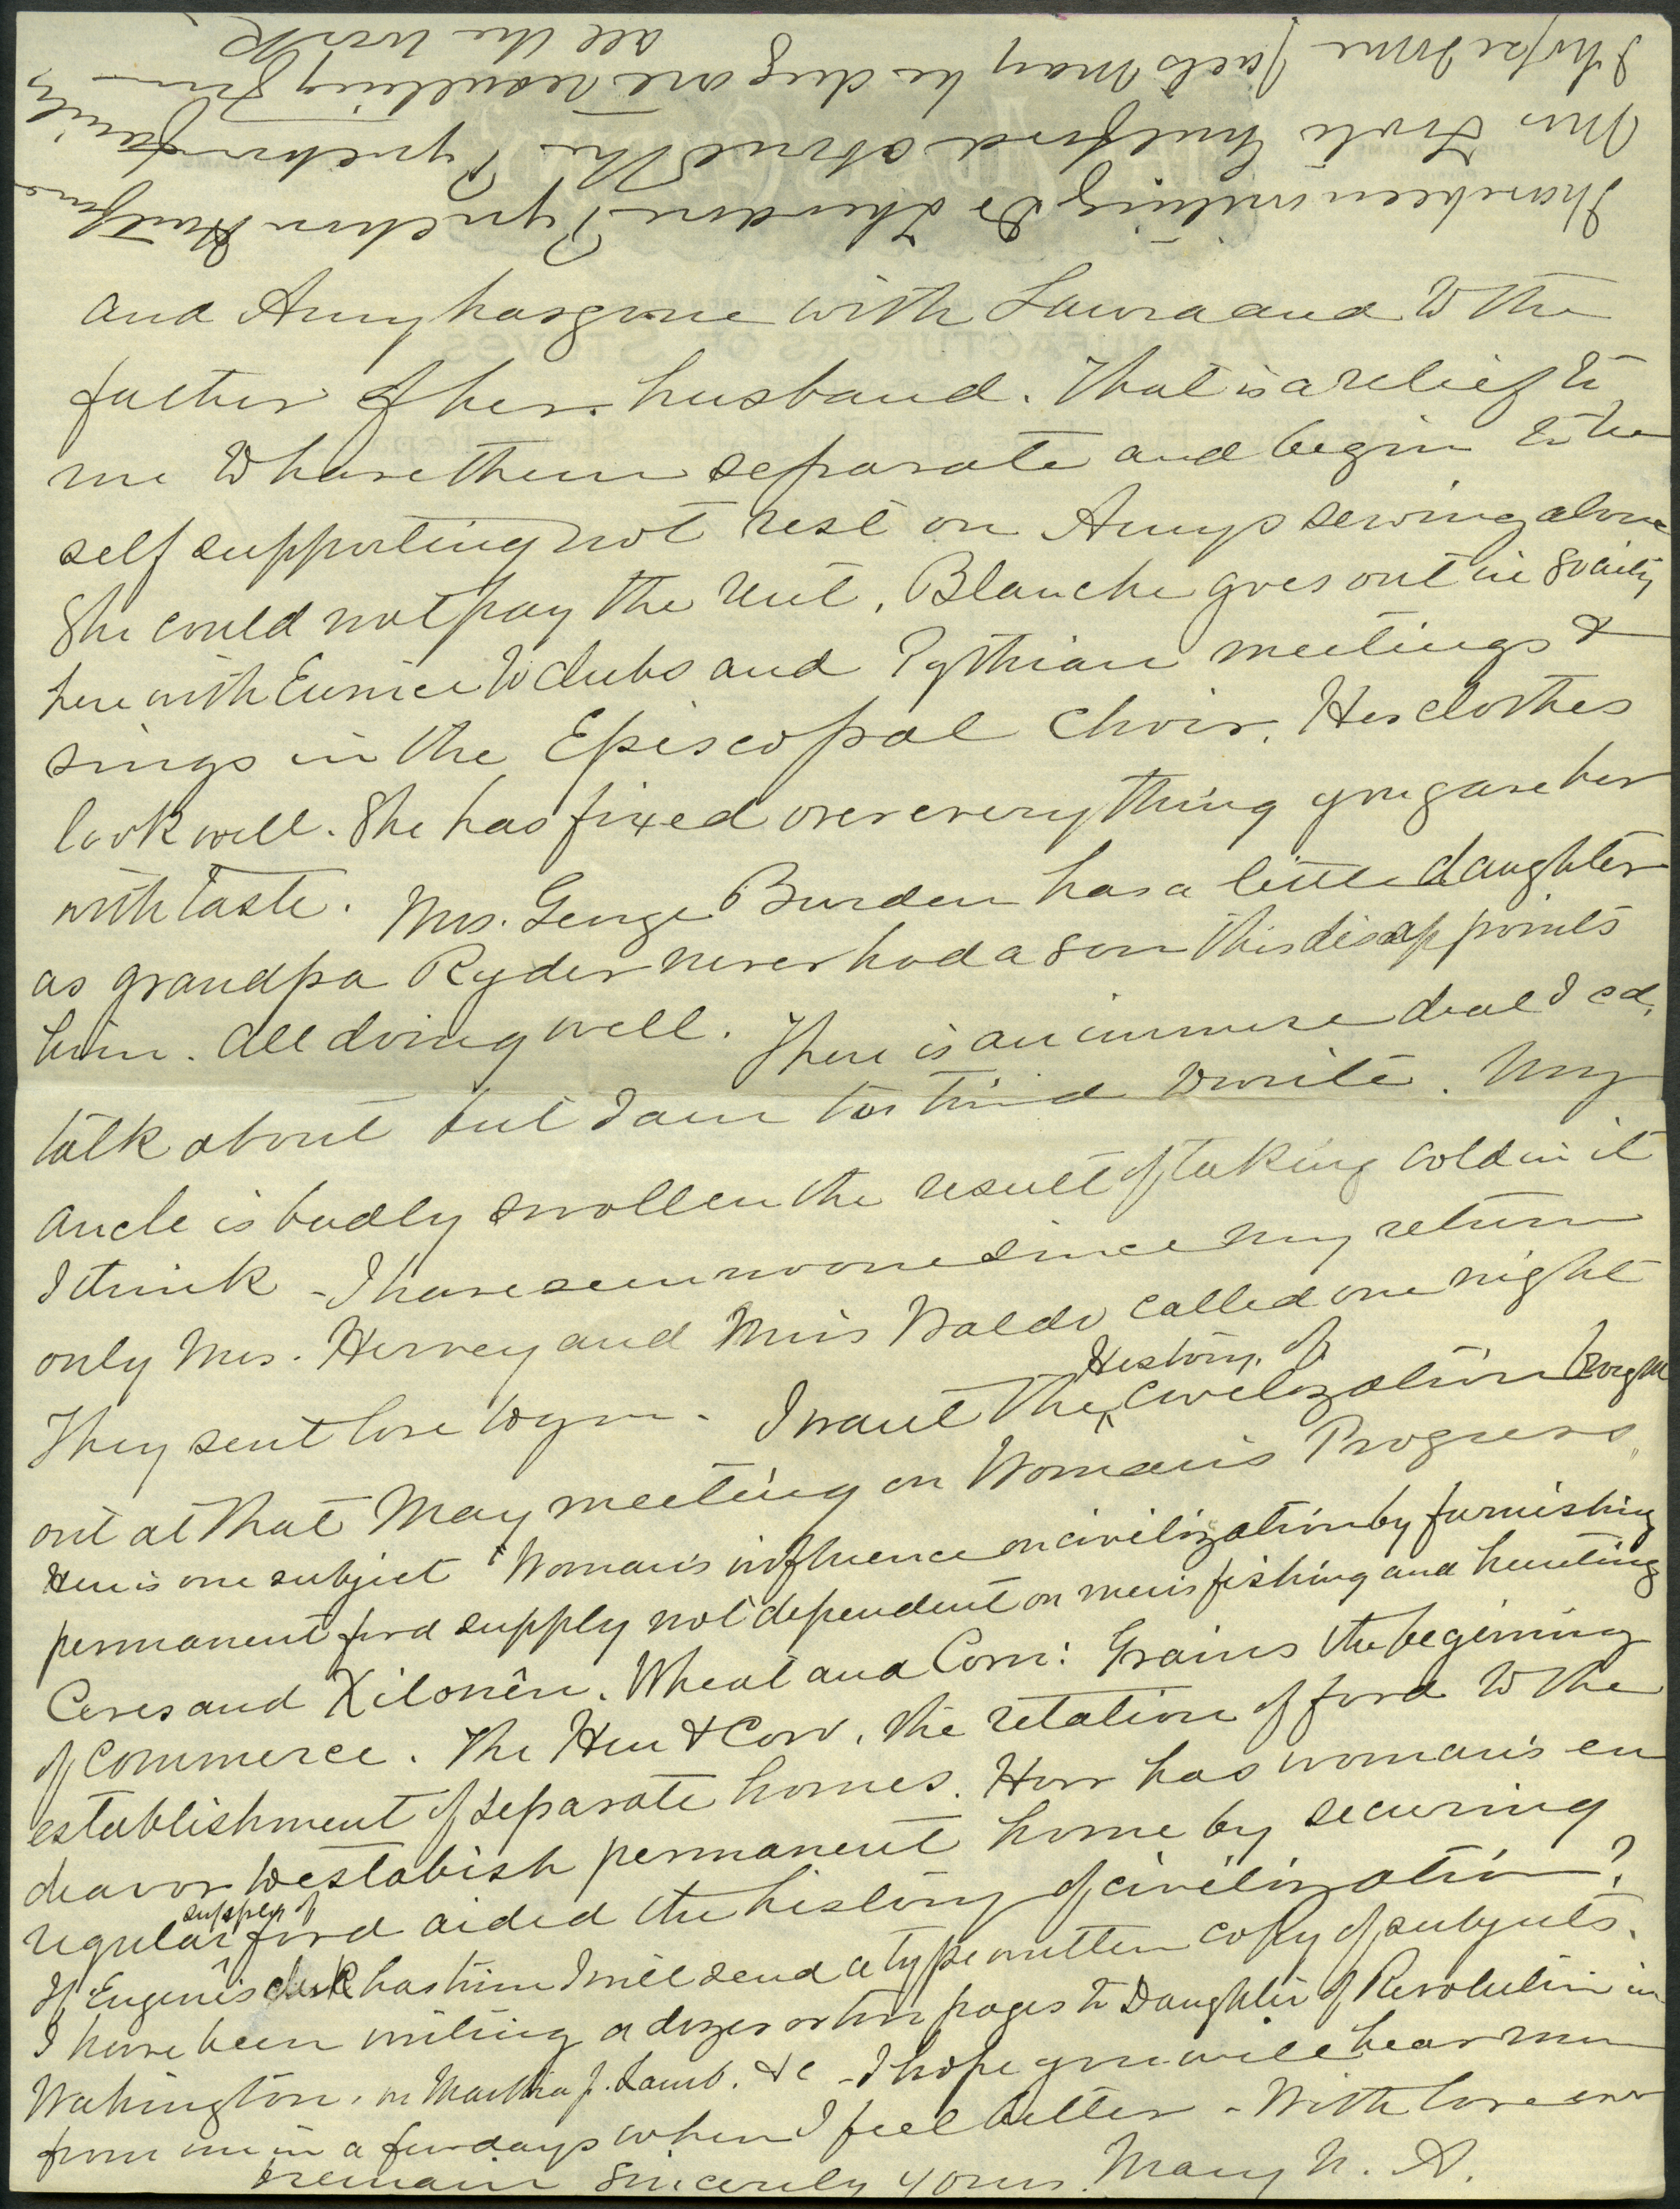 and Amy has gone with Laura and to the
father of her husband. That is a relief to
me to have them separate and begin to be
self supporting not rest on Amys sewing alone
She could not pay the rent. Blanche goes out in society
here with Eunice to clubs and Pythian meetings &
sings in the Episcopal Choir. Her clothes
look well. She has fixed over everything you gave her
with taste. Mrs. George Burden has a little daughter
as grandpa Ryder never had a son this disappoints
him. All doing well. There is an immense deal I cd.
talk about but I am too tired to write. My
ancle is badly swollen the result of taking cold in it
I think - I have seen no one since my return
only Mrs. Hervey and Miss Waldo called one night
They sent love to you. - I want the History of civilization brought
out at that May meeting on Woman's Progress.
Here is one subject "Woman's influence on civilization by furnishing
permanent food supply not dependent on men's fishing and hunting
Ceres and Xilonên. Wheat and Corn: Grains the beginning
of Commerce. The Hen & Cow. The relation of food to the
establishment of separate homes. How has woman's en
deavor to establish permanent home by securing
regular supply of food aided the history of civilization?
If Eugene's clerk has time I will send a type written copy of subjects.
I have been writing a dozen or two pages to Daughter of Revolution in
Wahington, on Martha J. Lamb. &c - I hope you will hear
from me in a few days when I feel better - With love ever
remain sincerely yours. Mary N. A.
I have been writing to Theodore Pynchon
Mrs Foote Hulford about the Pynchon family
I hope some facts may be dug out resulting from
all the work.